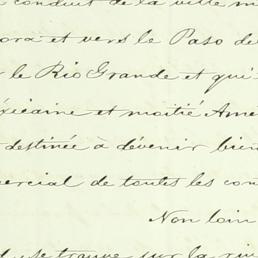 conduit de la ville m
ora et vers le Paso del
le Rio Grande et qui
éxicaine et moitié Amé
destinée à dévenir bien
ercial de toutes les con
Non loin
se trouve sur la riv